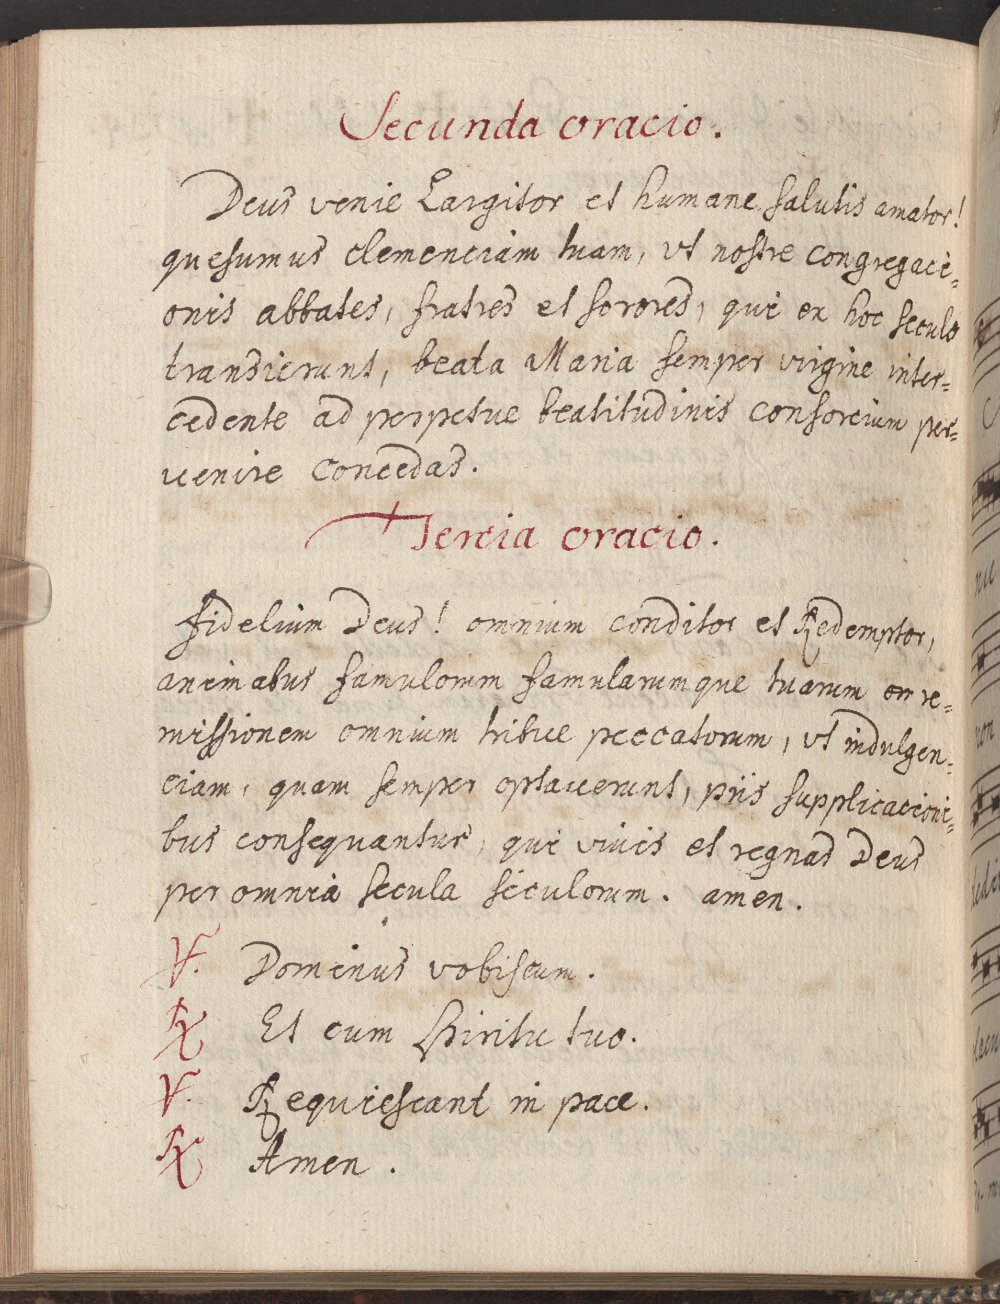 Secunda oracio.
Deus venie Largitor et humane salutis amator!
quesumus clemenciam tuam, ut nostre congregaci-
onis abbates, fratres et sorores, qui ex hoc seculo
transierunt, beata Maria semper virgine inter-
cedente ad perpetue beatitudinis consorcium per-
venire concedas.
Tercia oracio.
Fidelium Deus! omnium conditor et Redemptor,
animabus famulorum famularumque tuarum re-
missionem omnium tribue peccatorum, ut indulgen-
ciam, quam semper optaverunt, piis supplicacioni-
bus consequantur, qui vivis et regnas Deus
per omnia secula seculorum. amen.
℣. Dominus vobiscum.
℟ Et cum Spiritu tuo.
℣. Requiescant in pace.
℟ Amen.